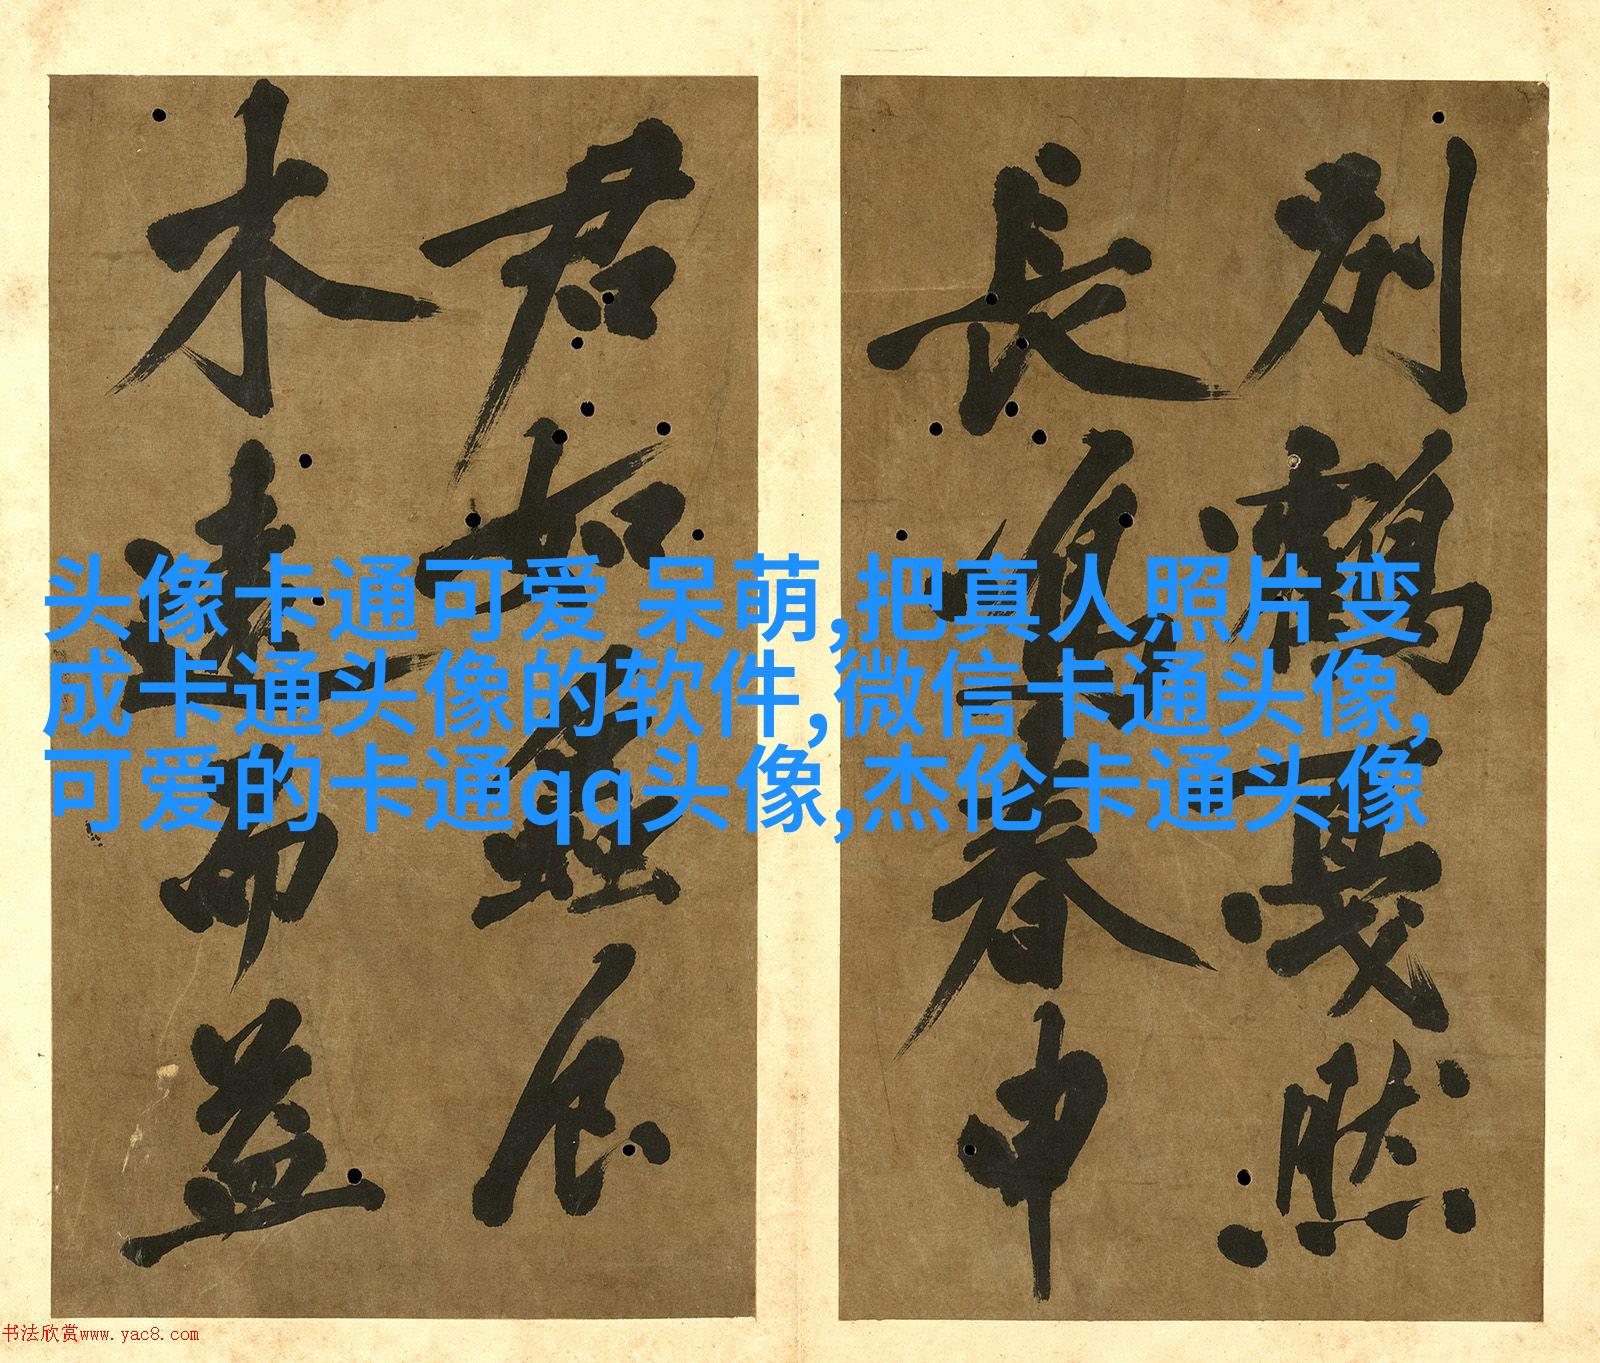 别鶴戛然
長春申
君如
木而益
头像卡通可爱 呆萌,把真人照片变
成卡通头像的软件,微信卡通头像,
可爱的卡通qq头像,杰伦卡通头像
书法欣赏www.yac8.com